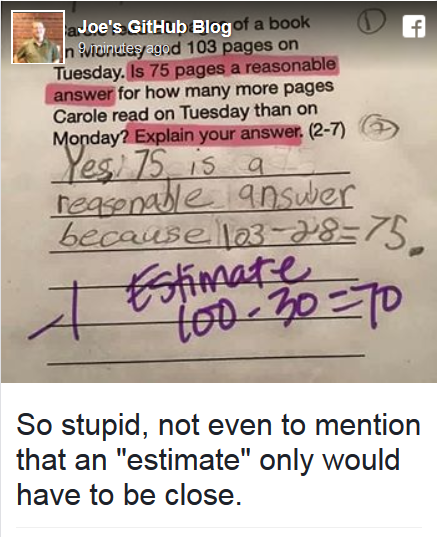 Joe's GitHub Blog of a book
9 minutes ago 103 pages on
Tuesday. Is 75 pages a reasonable
answer for how many more pages
Carole read on Tuesday than on
Monday? Explain your answer. (2-7)
Yes! 75 is a
reasonable answer
because 103-28=75.
Estimate
100-30=70
So stupid, not even to mention
that an "estimate" only would
have to be close.